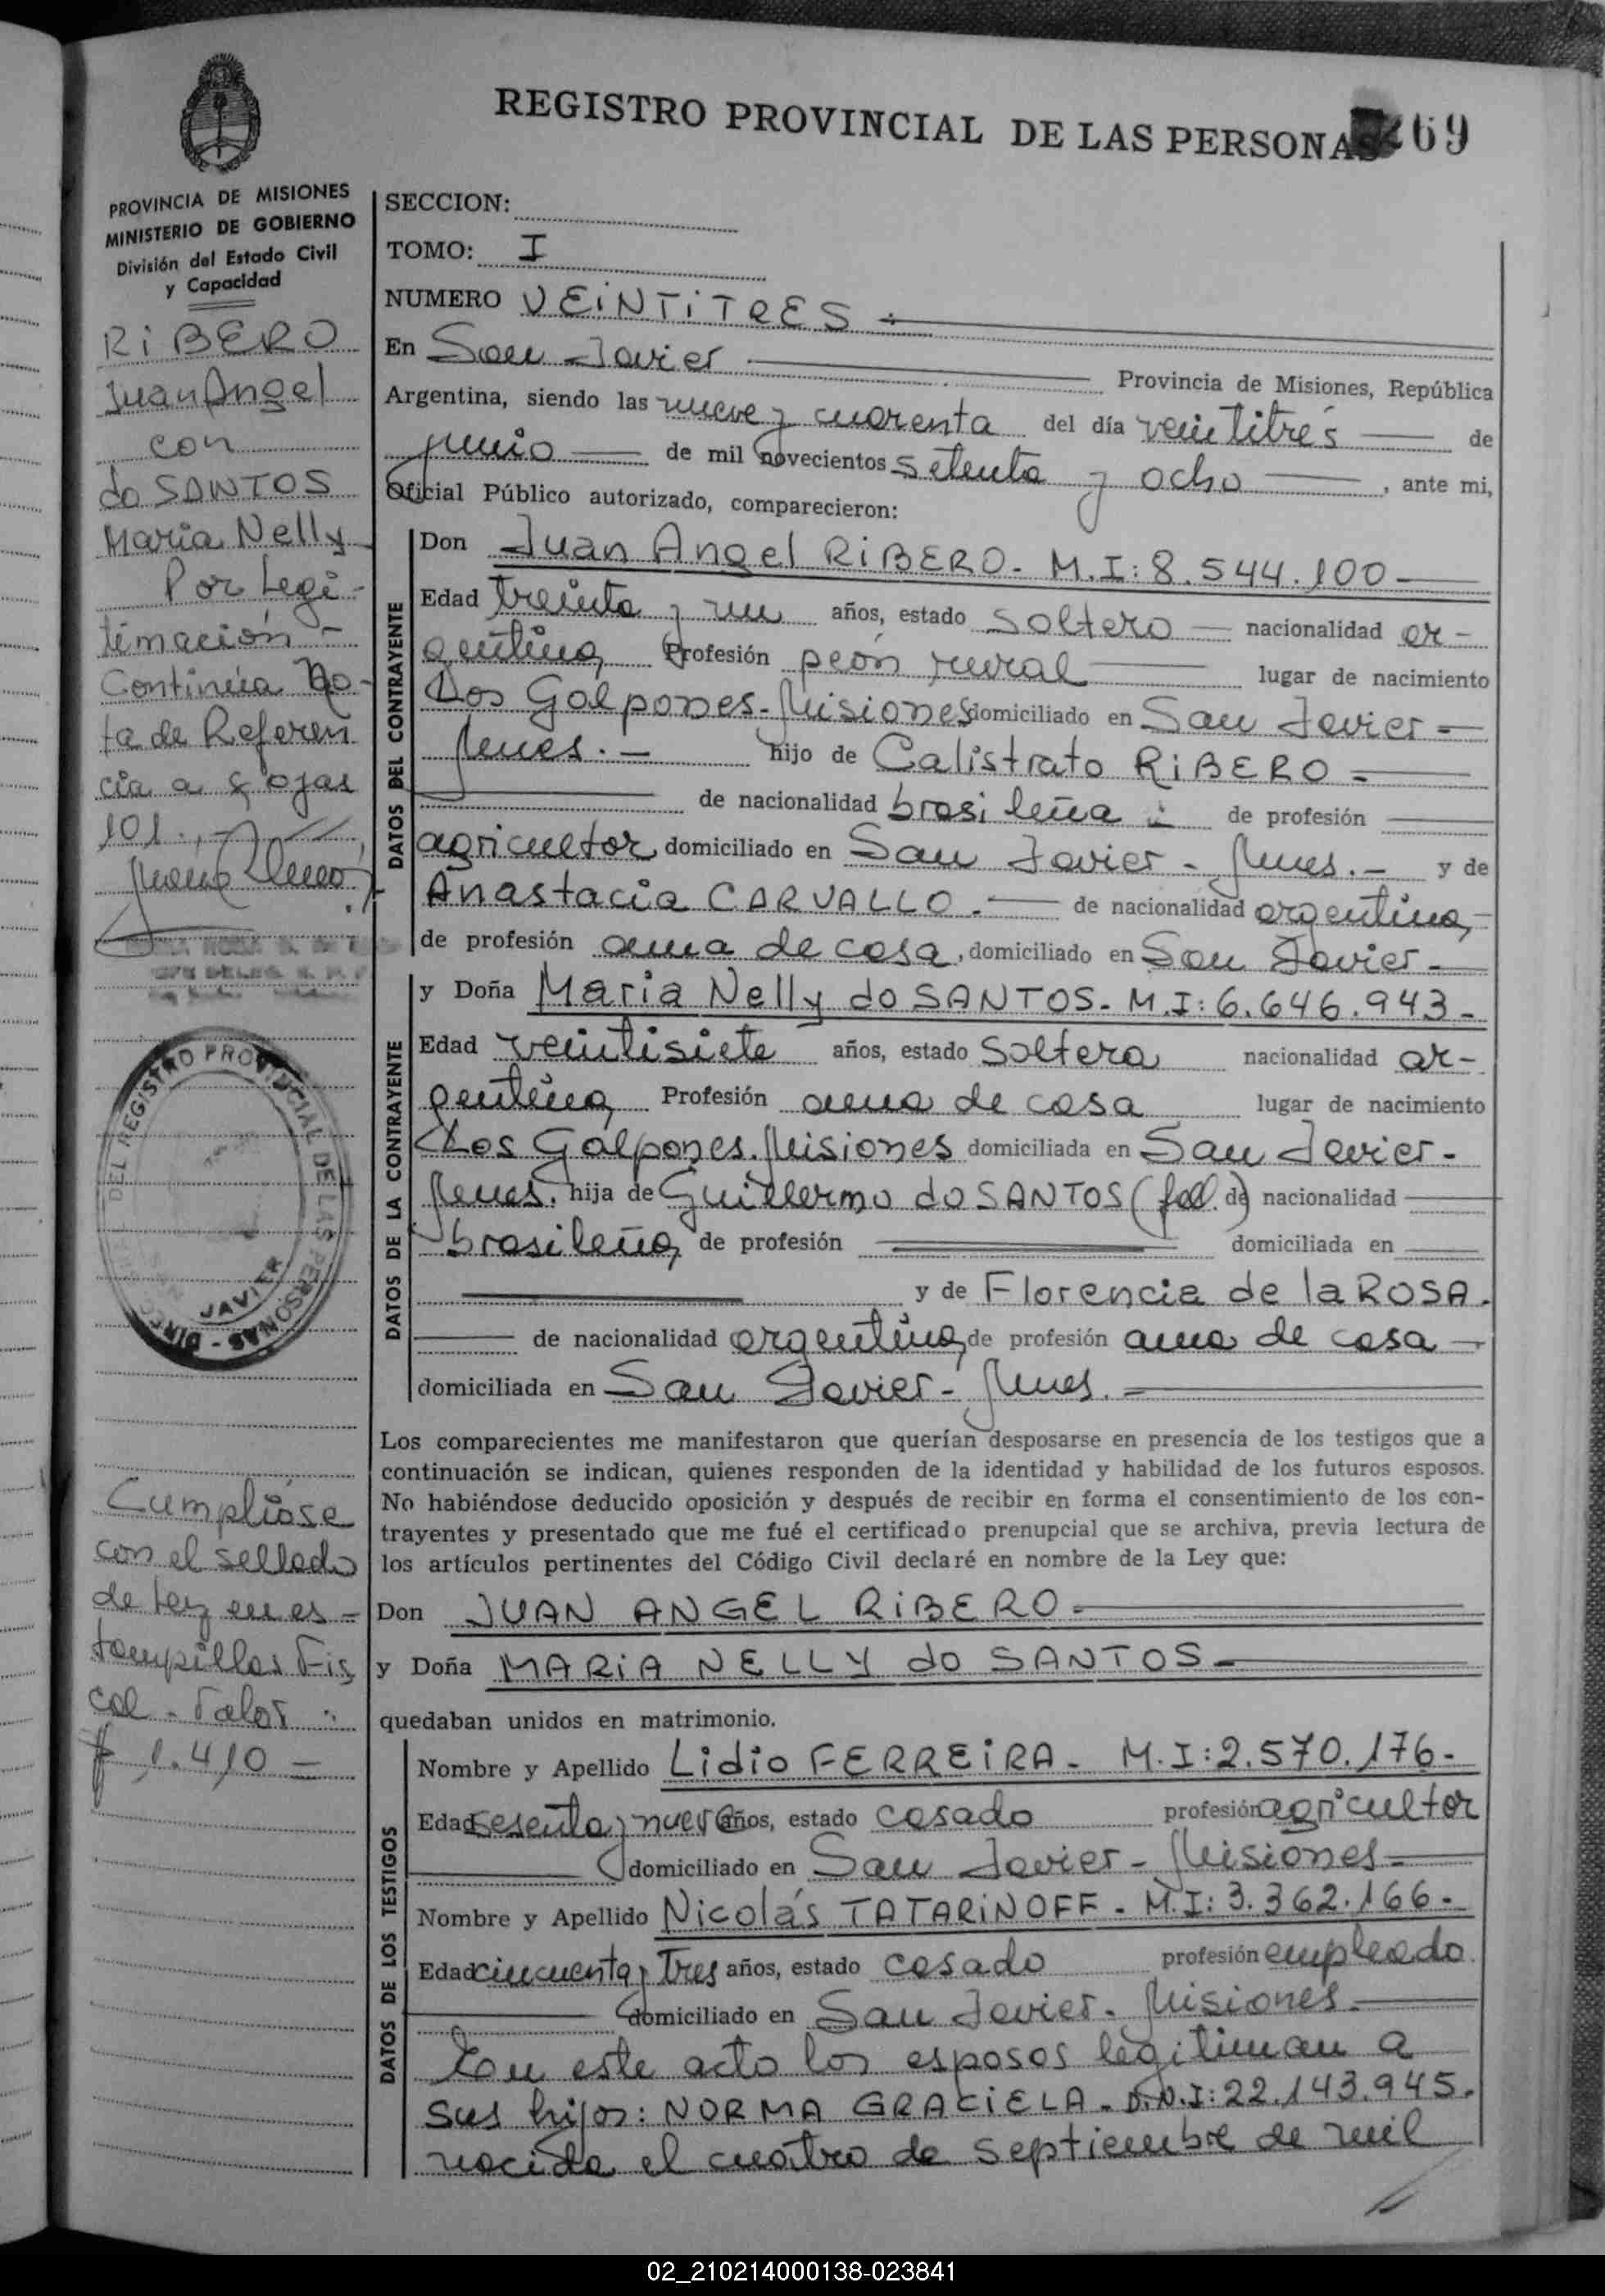 REGISTRO PROVINCIAL DE LAS PERSONAS 69
PROVINCIA DE MISIONES
MINISTERIO DE GOBIERNO
División del Estado Civil
y Capacidad
RiBERO
Juan Angel
con
do SANTOS
Maria Nelly
Por Legi-
timación -
Continúa No-
ta de Referen
cia a fojas
101.
DEL REGISTRO PROVINCIAL DE LAS PERSONAS - DIREC
JAVIER
Cumplióse
con el sellado
de Ley en es-
tampillas Fis
cal - Valor :
$ 1.410 -
SECCION:
TOMO: I
NUMERO VEiNTiTRES -
En San Javier Provincia de Misiones, República
Argentina, siendo las nueve y cuarenta del día veintitrés de
junio de mil novecientos setenta y ocho , ante mi,
Oficial Público autorizado, comparecieron:
DATOS DEL CONTRAYENTE
Don Juan Angel RiBERO - M.I: 8.544.100
Edad treinta y un años, estado soltero nacionalidad ar-
gentina, Profesión peón rural lugar de nacimiento
Dos Galpones - Misiones domiciliado en San Javier -
Mnes. - hijo de Calistrato RiBERO -
de nacionalidad brasileña de profesión
agricultor, domiciliado en San Javier - Mnes. - y de
Anastacia CARVALLO. - de nacionalidad argentina,
de profesión ama de casa, domiciliado en San Javier -
DATOS DE LA CONTRAYENTE
y Doña Maria Nelly do SANTOS - M.I: 6.646.943 -
Edad veintisiete años, estado soltera nacionalidad ar-
gentina, Profesión ama de casa lugar de nacimiento
Dos Galpones. Misiones domiciliada en San Javier -
Mnes. hija de Guillermo do SANTOS (fall.) de nacionalidad
brasileña, de profesión domiciliada en
y de Florencia de la ROSA.
de nacionalidad argentina, de profesión ama de casa -
domiciliada en San Javier - Mnes. -
Los comparecientes me manifestaron que querían desposarse en presencia de los testigos que a
continuación se indican, quienes responden de la identidad y habilidad de los futuros esposos.
No habiéndose deducido oposición y después de recibir en forma el consentimiento de los con-
trayentes y presentado que me fué el certificado prenupcial que se archiva, previa lectura de
los artículos pertinentes del Código Civil declaré en nombre de la Ley que:
Don JUAN ANGEL RiBERO -
y Doña MARiA NELLY do SANTOS -
quedaban unidos en matrimonio.
DATOS DE LOS TESTIGOS
Nombre y Apellido Lidio FERREiRA - M.I: 2.570.176 -
Edad sesenta y nueve años, estado casado profesión agricultor
domiciliado en San Javier - Misiones -
Nombre y Apellido Nicolás TATARiNOFF - M.I: 3.362.166 -
Edad cincuenta y Tres años, estado casado profesión empleado
domiciliado en San Javier. Misiones -
En este acto los esposos legitiman a
sus hijos: NORMA GRACiELA - D.N.I: 22.143.945.
nacida el cuatro de Septiembre de mil
02_210214000138-023841